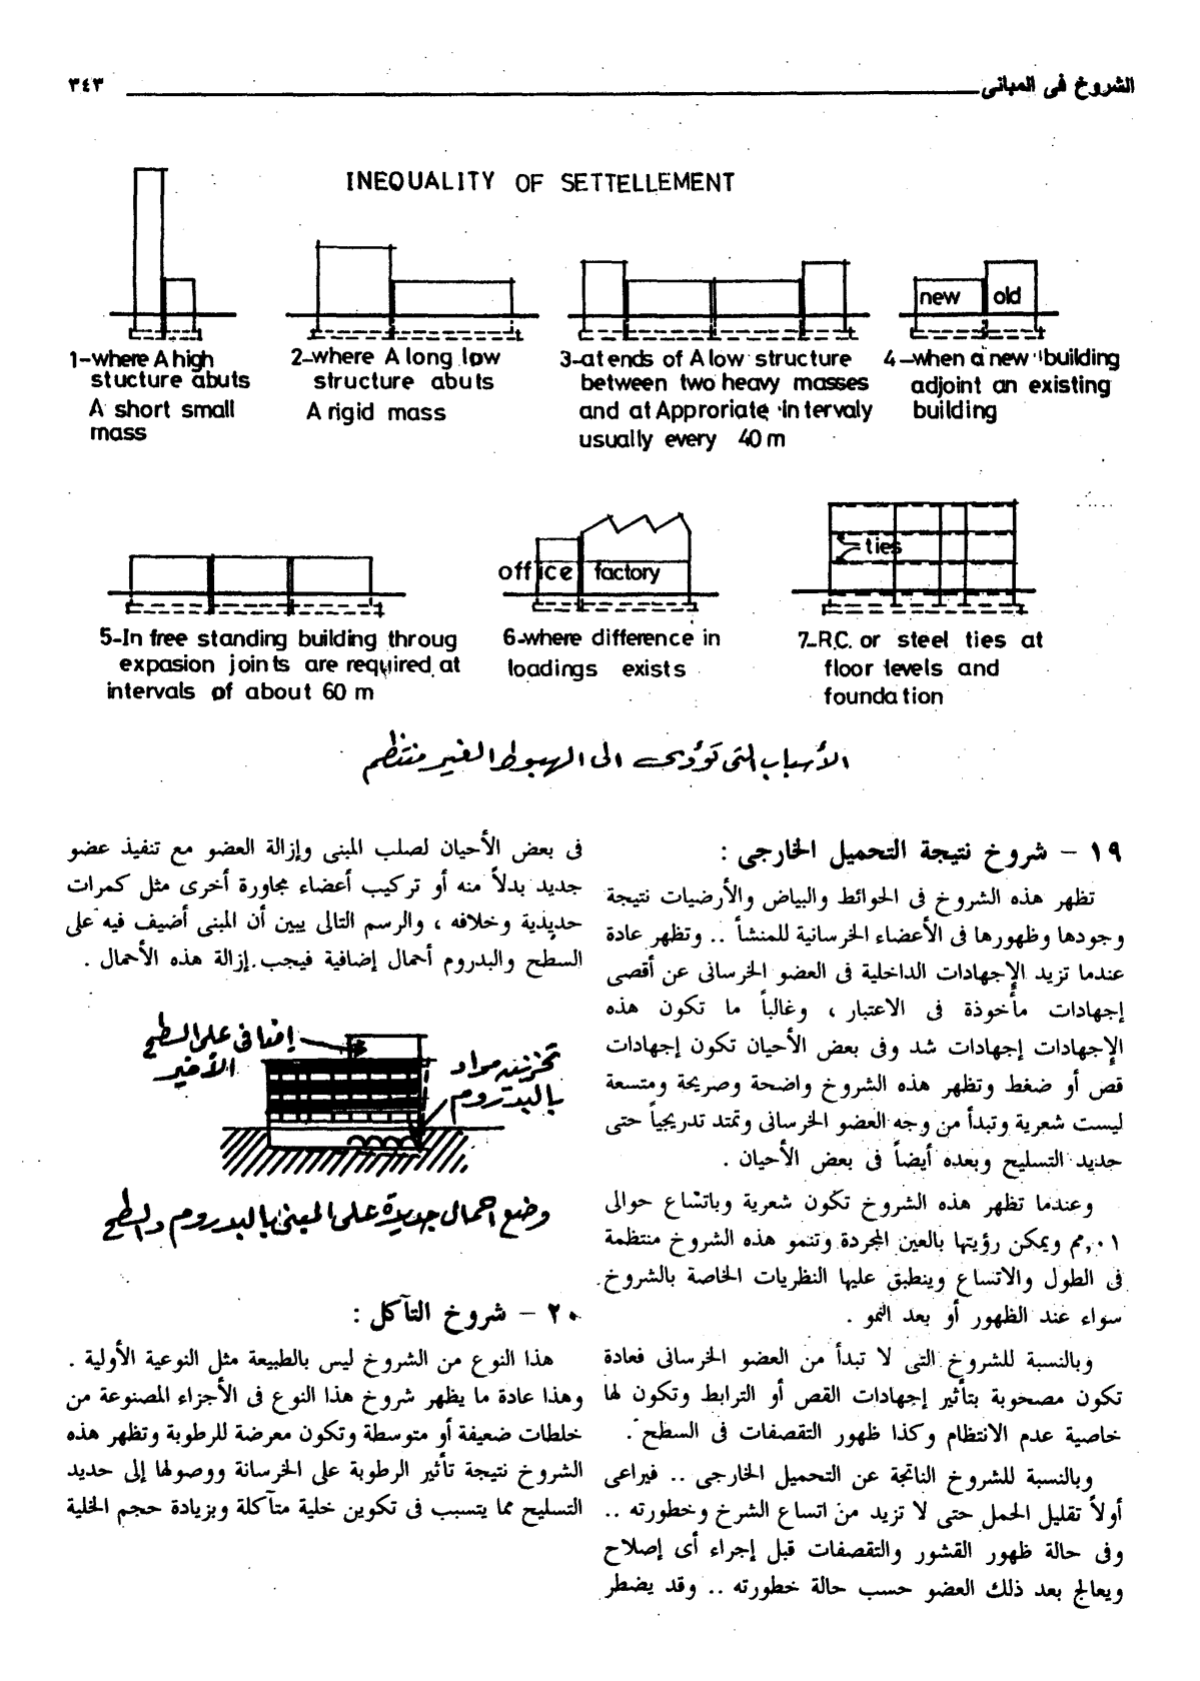 الشروخ فى المبانى
٣٤٣
INEQUALITY OF SETTELLEMENT
1-where A high
stucture abuts
A short small
mass
2-where A long low
structure abuts
A rigid mass
3-at ends of A low structure
between two heavy masses
and at Approriate intervaly
usually every 40 m
new
old
4-when a new building
adjoint an existing
building
5-In free standing building throug
expasion joints are required at
intervals of about 60 m
office
factory
6-where difference in
loadings exists
ties
7-R.C. or steel ties at
floor levels and
foundation
الأسباب التى تؤدى الى الهبوط الغير منتظم
١٩ – شروخ نتيجة التحميل الخارجى :
تظهر هذه الشروخ فى الحوائط والبياض والأرضيات نتيجة
وجودها وظهورها فى الأعضاء الخرسانية للمنشأ .. وتظهر عادة
عندما تزيد الإجهادات الداخلية فى العضو الخرسانى عن أقصى
إجهادات مأخوذة فى الاعتبار ، وغالباً ما تكون هذه
الإجهادات إجهادات شد وفى بعض الأحيان تكون إجهادات
قص أو ضغط وتظهر هذه الشروخ واضحة وصريحة ومتسعة
ليست شعرية وتبدأ من وجه العضو الخرسانى وتمتد تدريجياً حتى
حديد التسليح وبعده أيضاً فى بعض الأحيان .
وعندما تظهر هذه الشروخ تكون شعرية وباتساع حوالى
٠,٠١م ويمكن رؤيتها بالعين المجردة وتنمو هذه الشروخ منتظمة
فى الطول والاتساع وينطبق عليها النظريات الخاصة بالشروخ
سواء عند الظهور أو بعد النمو .
وبالنسبة للشروخ التى لا تبدأ من العضو الخرسانى فعادة
تكون مصحوبة بتأثير إجهادات القص أو الترابط وتكون لها
خاصية عدم الانتظام وكذا ظهور التقصفات فى السطح .
وبالنسبة للشروخ الناتجة عن التحميل الخارجى .. فيراعى
أولاً تقليل الحمل حتى لا تزيد من اتساع الشرخ وخطورته ..
وفى حالة ظهور القشور والتقصفات قبل إجراء أى إصلاح
ويعالج بعد ذلك العضو حسب حالة خطورته .. وقد يضطر
فى بعض الأحيان لصلب المبنى وإزالة العضو مع تنفيذ عضو
جديد بدلاً منه أو تركيب أعضاء مجاورة أخرى مثل كمرات
حديدية وخلافه ، والرسم التالى يبين أن المبنى أضيف فيه على
السطح والبدروم أحمال إضافية فيجب إزالة هذه الأحمال .
إضافى على السطح
الأخير
تخزين مواد
بالبدروم
وضع احمال جديدة على المبنى بالبدروم والسطح
٢٠ – شروخ التآكل :
هذا النوع من الشروخ ليس بالطبيعة مثل النوعية الأولية .
وهذا عادة ما يظهر شروخ هذا النوع فى الأجزاء المصنوعة من
خلطات ضعيفة أو متوسطة وتكون معرضة للرطوبة وتظهر هذه
الشروخ نتيجة تأثير الرطوبة على الخرسانة ووصولها إلى حديد
التسليح مما يتسبب فى تكوين خلية متآكلة وبزيادة حجم الخلية